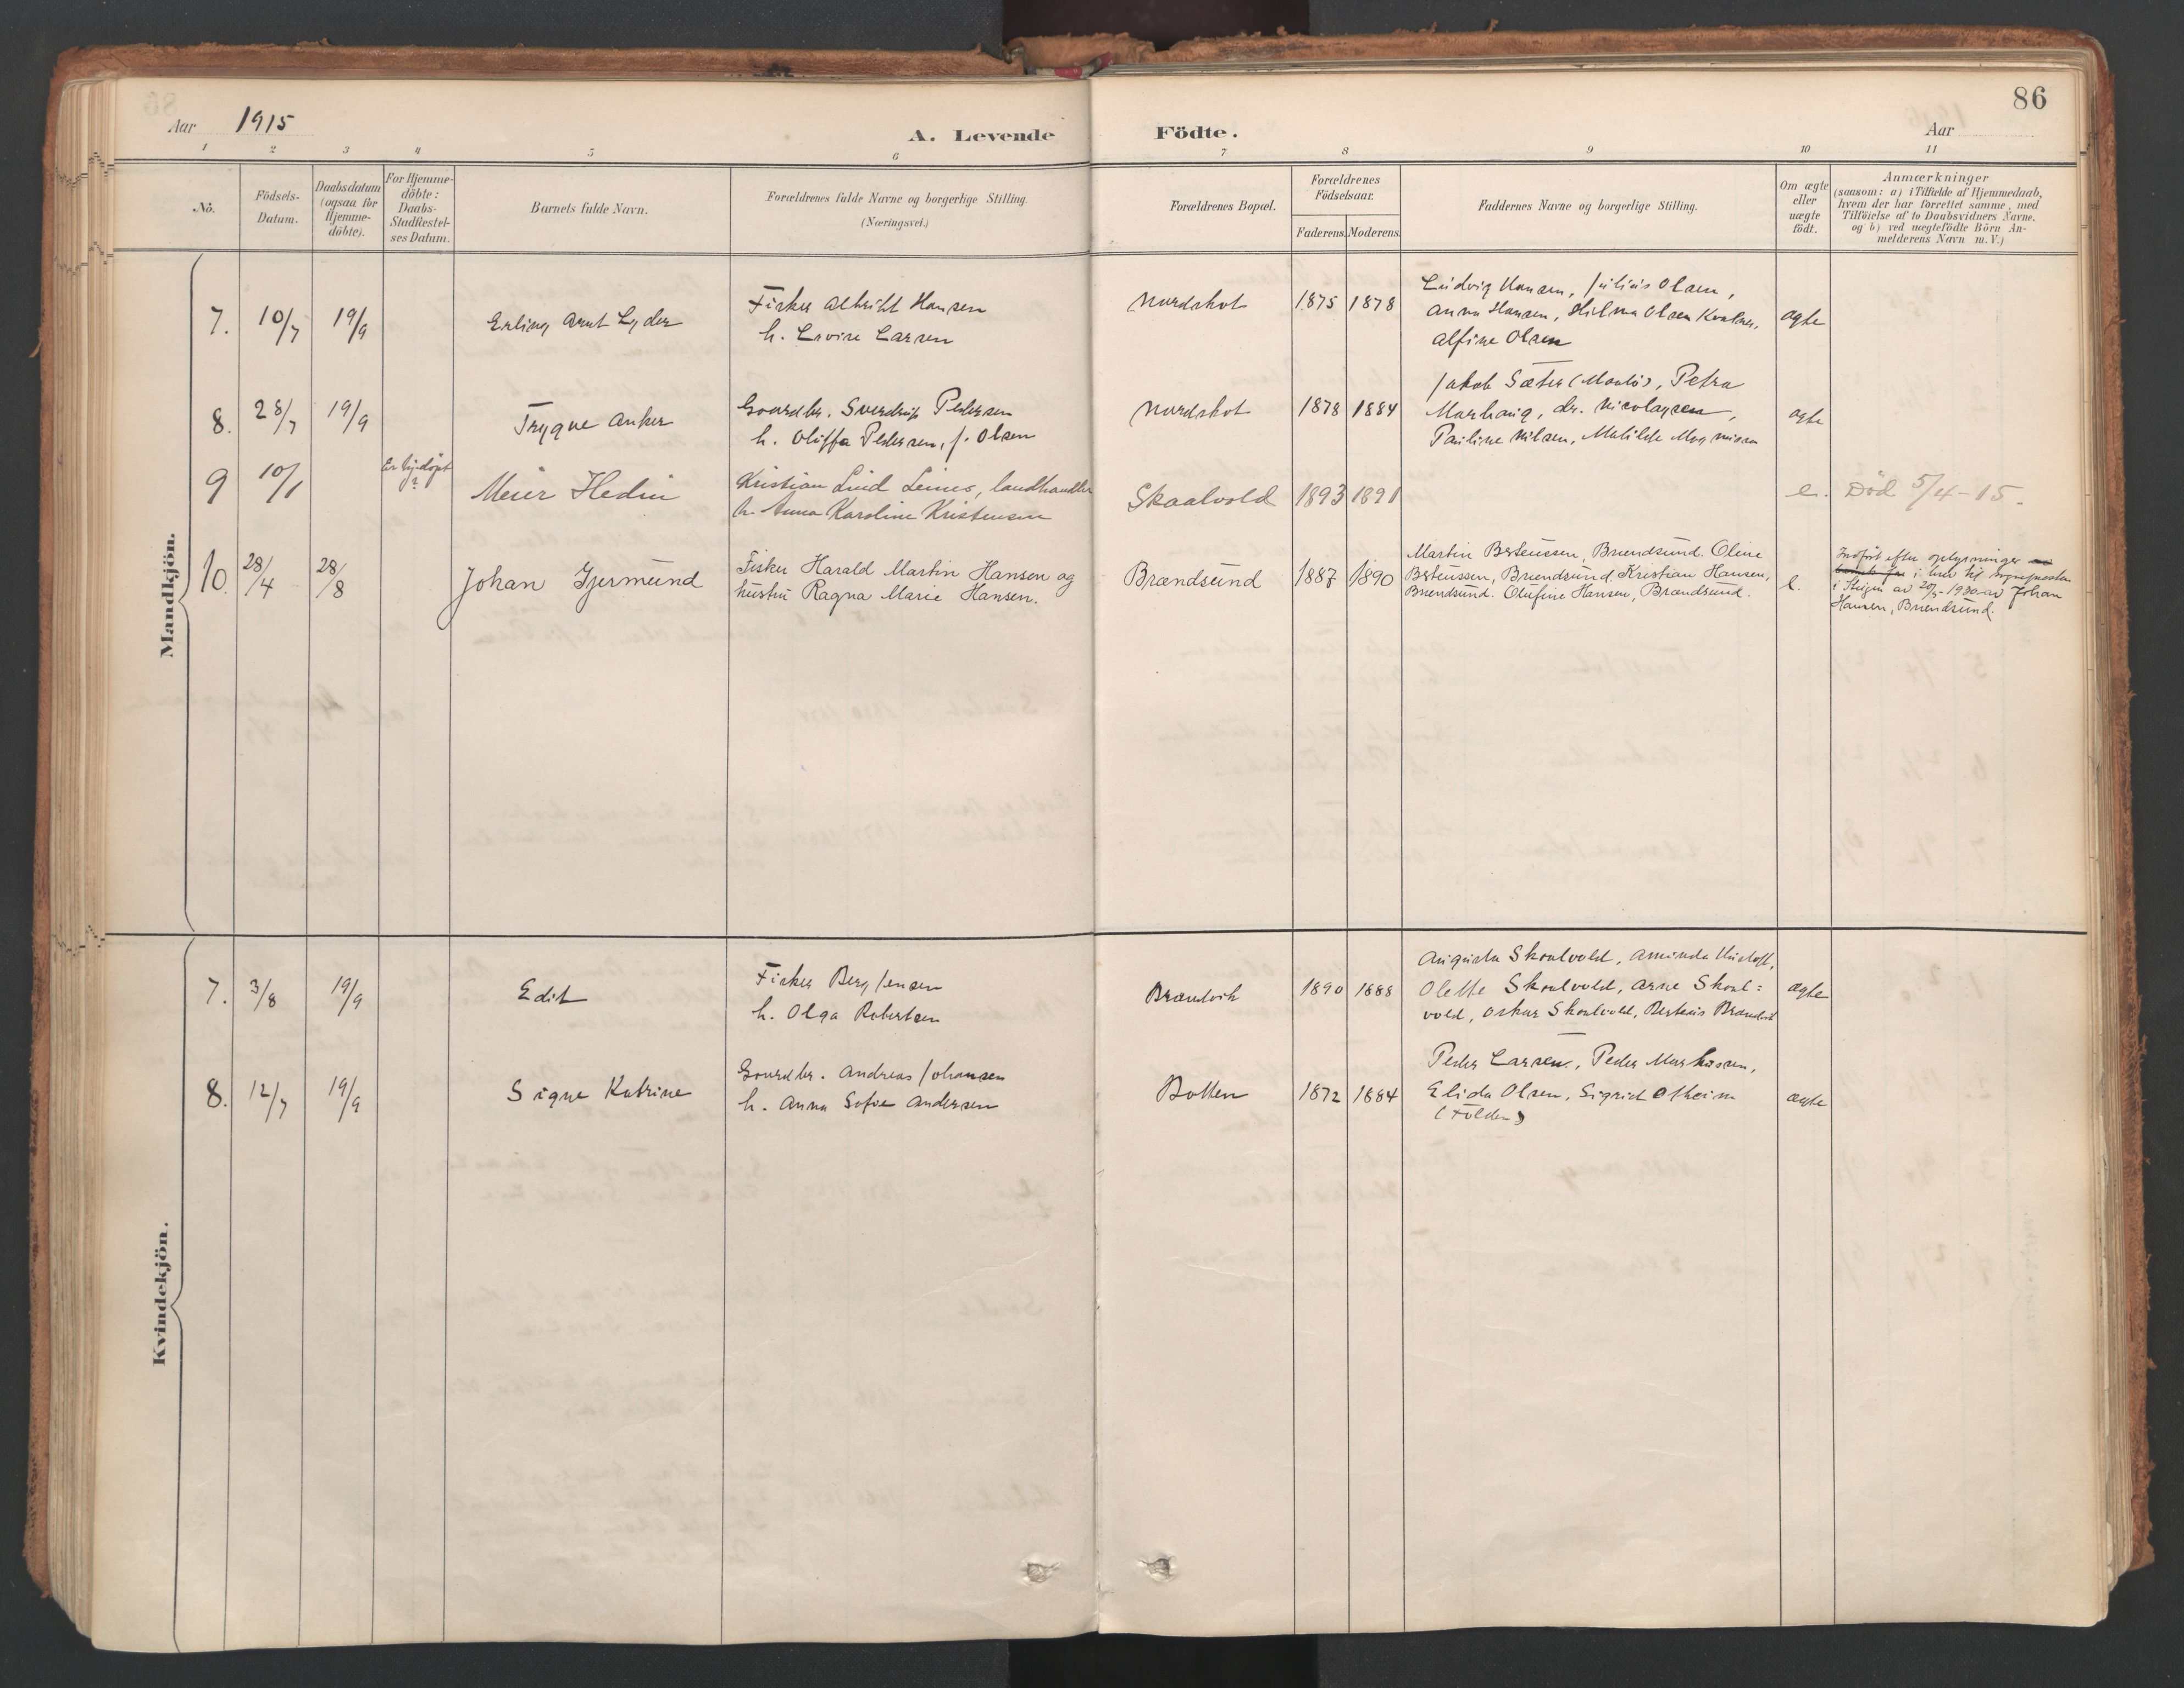 86
Aar 1915
A. Levende Födte.
Aar
1 2 3 4 5 6 7 8 9 10 11
No.
Födsels-
Datum.
Daabsdatum
(ogsaa for
Hjemme-
döbte).
For Hjemme-
döbte:
Daabs-
Stadfæstel-
ses Datum.
Barnets fulde Navn.
Forældrenes fulde Navne og borgerlige Stilling.
(Næringsvei.)
Forældrenes Bopæl.
Forældrenes
Födselsaar.
Faderens. Moderens.
Faddernes Navne og borgerlige Stilling.
Om ægte
eller
uægte
födt.
Anmærkninger
(saasom: a) i Tilfælde af Hjemmedaab,
hvem der har forrettet samme, med
Tilföielse af to Daabsvidners Navne.
og b) ved uægtefödte Börn An-
melderens Navn m. V.)
Mandkjön.
7. 10/7 19/9 Erling Arnt Lyder
Fisker Albriht Hansen
h. Lovise Larsen
Nordskot 1875 1878
Ludvig Hansen, Julius Olsen,
Anna Hansen, Hilma Olsen
Alfine Olsen
ægte
8. 28/7 19/9 Trygve Anker
Gaardbr. Sverdrup Pedersen
h. Oliffa Pedersen, f. Olsen
Nordskot 1878 1884
Jakob Sæter (Manlö), Petra
Marhaug, dr. Nicolaysen,
Pauline Nilsen, Matilde Magnussen
ægte
9 10/1 Er hj.döpt
?
Meier Hedin
Kristian Lind Leines, landhandler
h. Anna Karoline Kristensen
Skaalvold 1893 1891
e. Död 5/4-15.
10. 28/4 28/8 Johan Gjermund
Fisker Harald Martin Hansen og
hustru Ragna Marie Hansen.
Brændsund 1887 1890
Martin Berteussen, Brændsund. Oline
Berteussen, Brændsund, Kristian Hansen,
Brændsund. Olufine Hansen, Brændsund.
e.
Indfört efter oplysninger
i brev til sogneprsten
i Steigen av 20/5-1930 av Johan
Hansen, Brændsund.
Kvindekjön.
7. 3/8 19/9 Edit
Fisker Berg Jensen
h. Olga Robertsen
Brændvik 1890 1888
Augusta Skaalvold, Aminda
Olette Skaalvold, Arne Skaal=
vold, Oskar Skaalvold, Berteus Brændvik
ægte
8. 12/7 19/9 Signe Katrine
Gaardbr. Andreas Johansen
h. Anna Sofie Andersen
Botten 1872 1884
Peder Larsen, Peder Markussen,
Elida Olsen, Sigrid Otheim
(Folden)
ægte